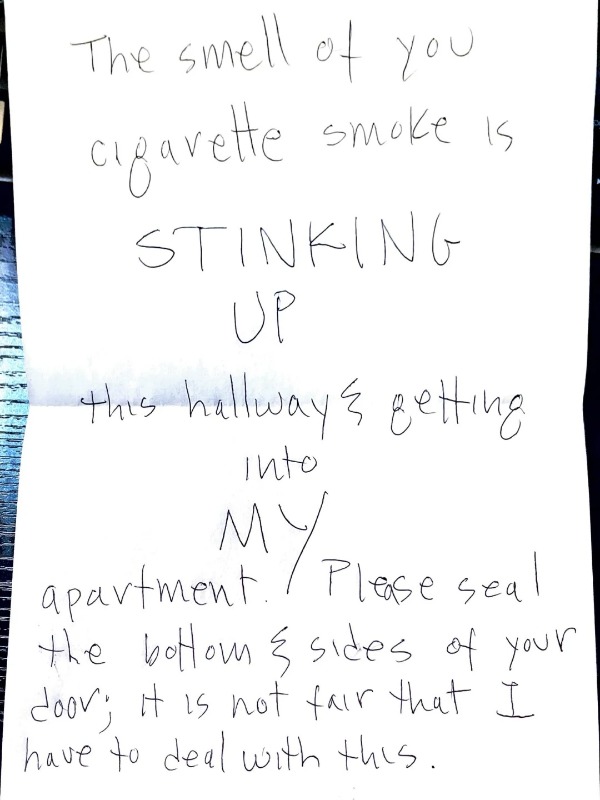 The smell of you
cigarette smoke is
STINKING
UP
this hallway & getting
into
MY
apartment. Please seal
the bottom & sides of your
door; it is not fair that I
have to deal with this.